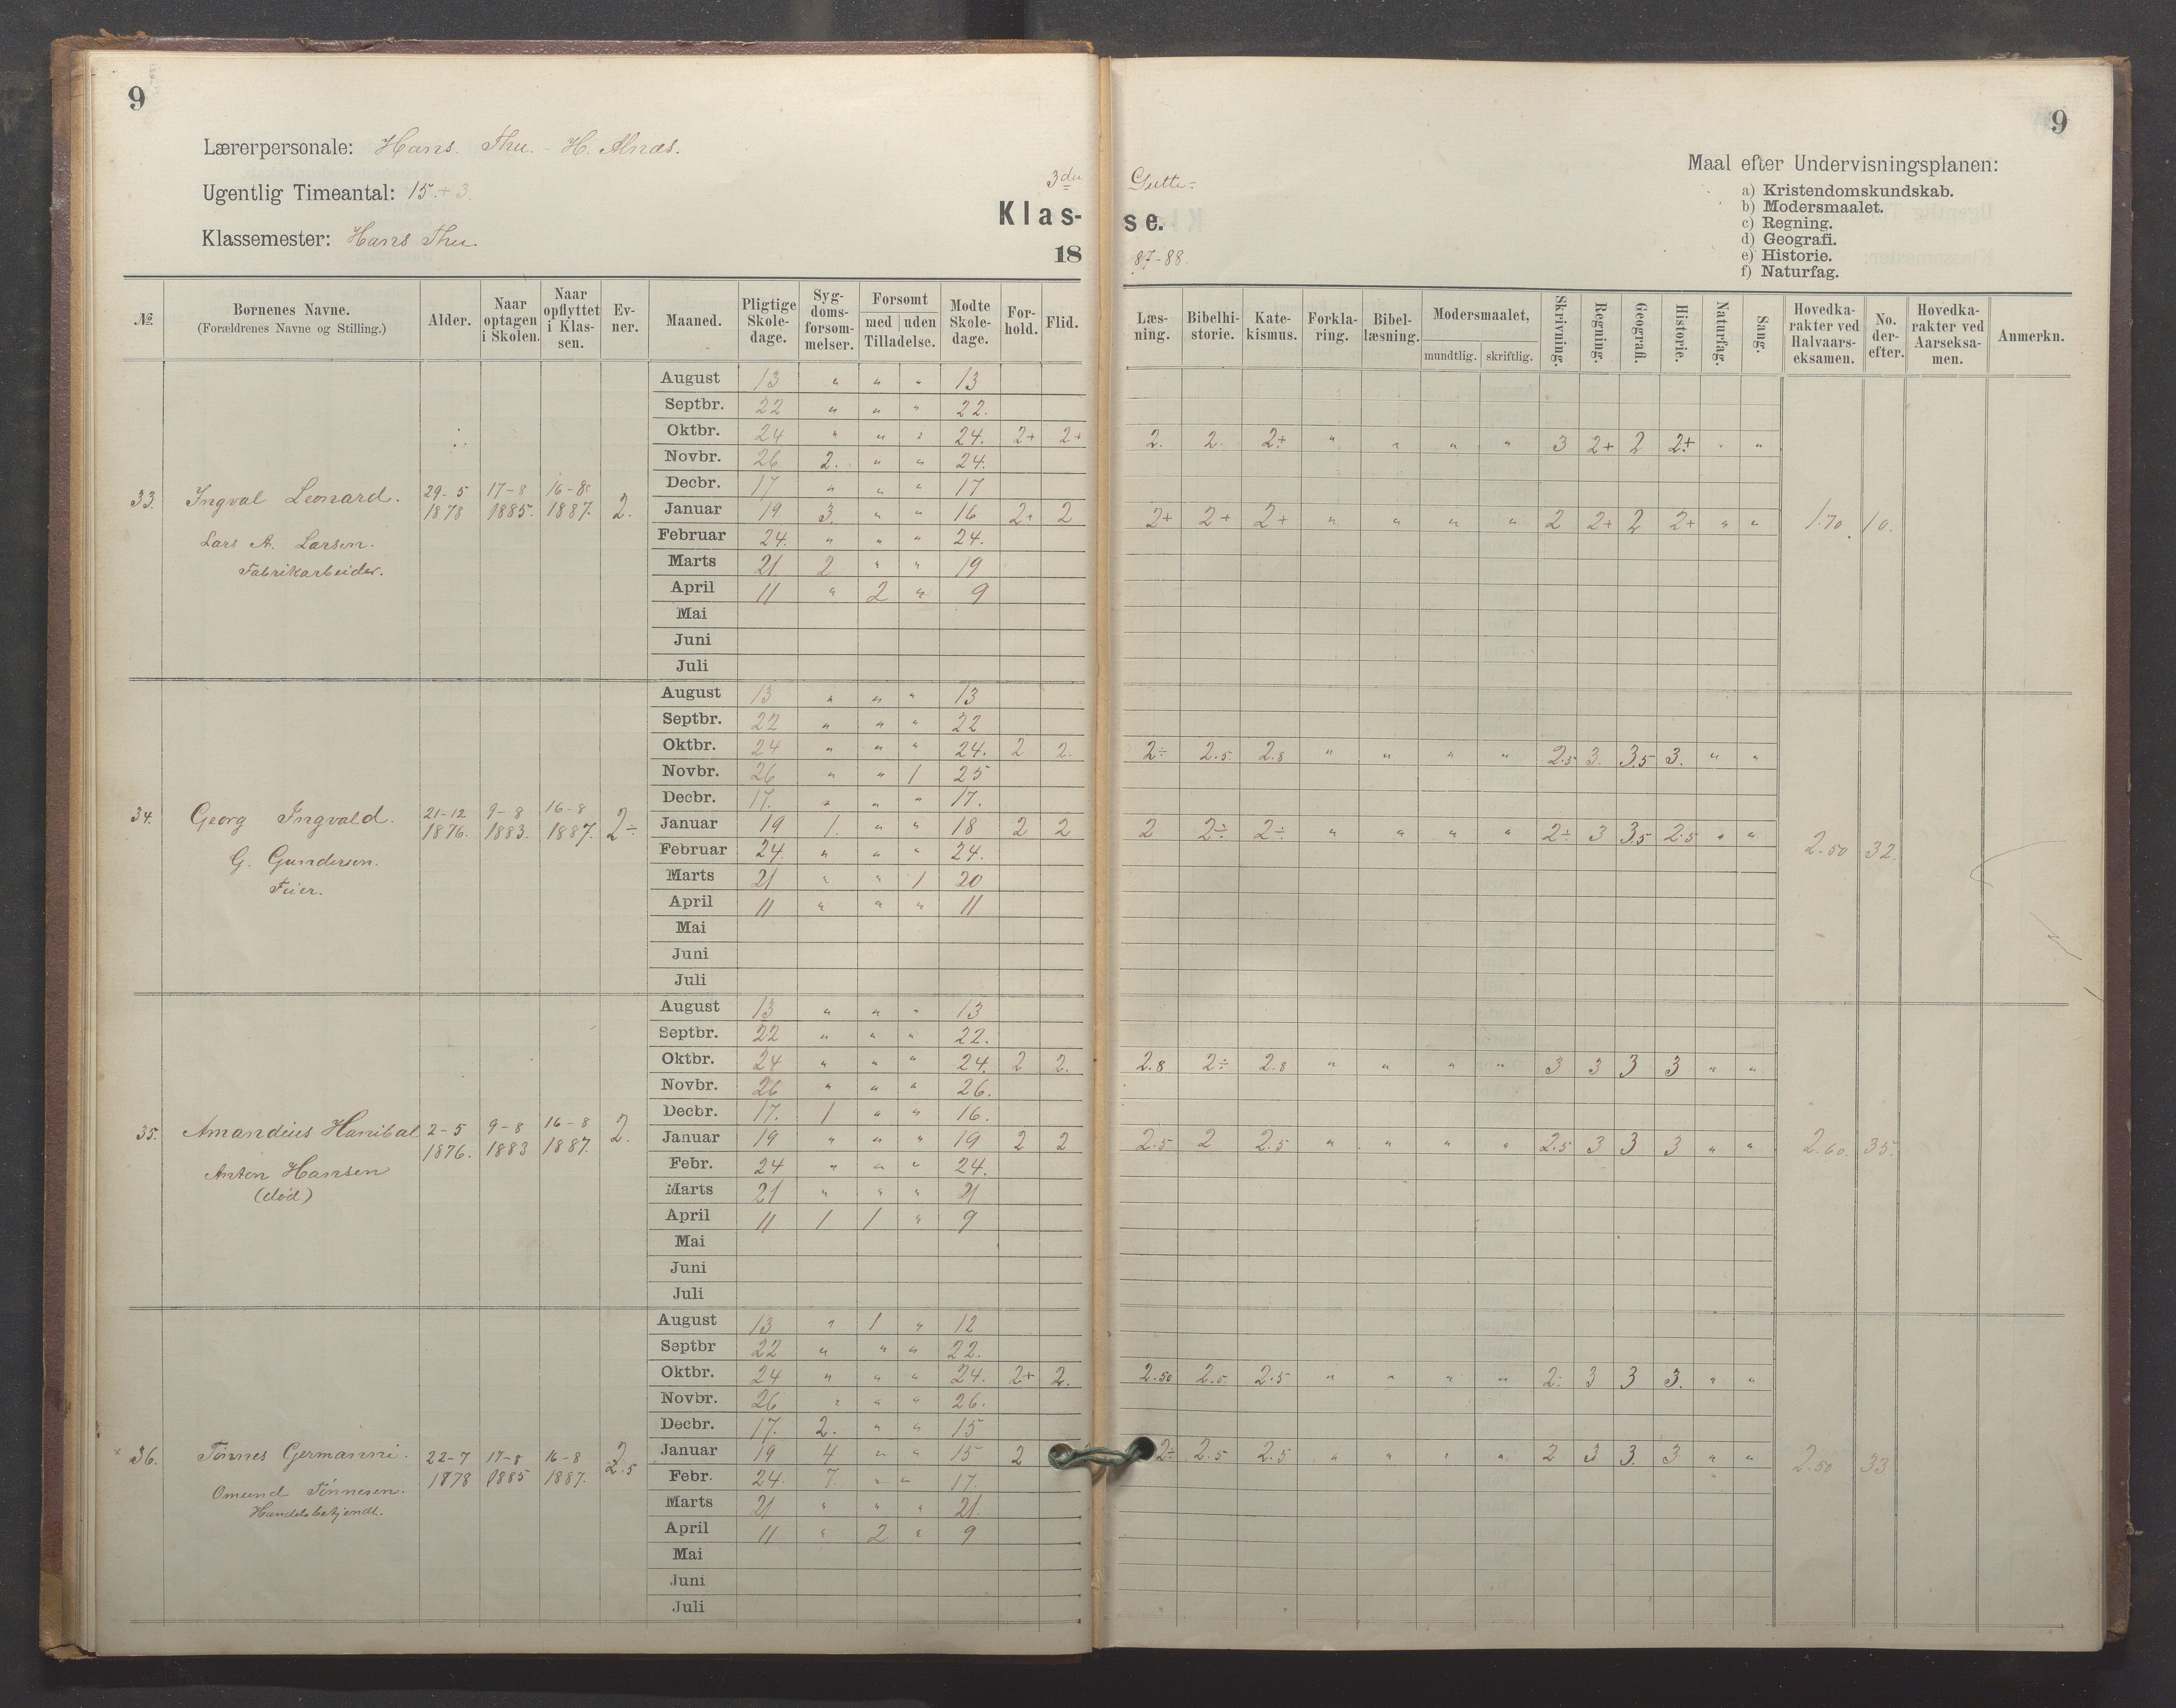 9
Lærerpersonale: Hans. Thu. - H. Alnæs.
Ugentlig Timeantal: 15.+3.
Klassemester: Hans Thu.
3die Gutte=
Klas- se.
18 87-88.
9
Maal efter Undervisningsplanen:
a) Kristendomskundskab.
b) Modersmaalet.
c) Regning.
d) Geografi.
e) Historie.
f) Naturfag.
№ | Børnenes Navne. (Forældrenes Navne og Stilling.) | Alder. | Naar optagen i Skolen. | Naar opflyttet i Klas- sen. | Ev- ner. | Maaned. | Pligtige Skole- dage. | Syg- doms- forsøm- melser. | Forsømt med uden Tilladelse. | Mødte Skole- dage. | For- hold. | Flid. | Læs- ning. | Bibelhi- storie. | Kate- kismus. | Forkla- ring. | Bibel- læsning. | Modersmaalet, mundtlig. skriftlig. | Skrivning. | Regning. | Geografi. | Historie. | Naturfag. | Sang. | Hovedka- rakter ved Halvaars- eksamen. | No. der- efter. | Hovedka- rakter ved Aarseksa- men. | Anmerkn.
33. Ingval Leonard. 29-5 1878 17-8 1885. 16-8 1887. 2.
Lars A. Larsen.
Fabrikarbeider.
August 13 " " " 13
Septbr. 22 " " " 22.
Oktbr. 24 " " " 24. 2+ 2+ 2. 2. 2+ " " " " 3 2+ 2 2+ " "
Novbr. 26 2. " " 24.
Decbr. 17 " " " 17
Januar 19 3. " " 16 2+ 2 2+ 2+ 2+ " " " " 2 2+ 2 2+ " " 1.70 10.
Februar 24. " " " 24.
Marts 21 2 " " 19
April 11 " 2 " 9
Mai
Juni
Juli
34. Georg Ingvald. 21-12 1876. 9-8 1883. 16-8 1887. 2÷
G. Gundersen.
Feier.
August 13 " " " 13
Septbr. 22 " " " 22
Oktbr. 24 " " " 24. 2 2. 2÷ 2.5 2.8 " " " " 2.5 3. 3.5 3. " "
Novbr. 26 " " 1 25
Decbr. 17. " " " 17.
Januar 19 1. " " 18 2 2 2 2÷ 2÷ " " " " 2÷ 3 3.5 2.5 " " 2.50 32.
Februar 24. " " " 24.
Marts 21 " " 1 20
April 11 " " " 11
Mai
Juni
Juli
35. Amandius Hanibal 2-5 1876. 9-8 1883 16-8 1887. 2.
Anton Hansen
(død)
August 13 " " " 13
Septbr. 22 " " " 22.
Oktbr. 24 " " " 24. 2 2. 2.8 2÷ 2.8 " " " " 3 3 3 3 " "
Novbr. 26 " " " 26.
Decbr. 17. 1 " " 16.
Januar 19 " " " 19 2 2 2.5 2 2.5 " " " " 2.5 3 3 3 " " 2.60. 35.
Febr. 24 " " " 24.
Marts 21 " " " 21
April 11 1 1 " 9
Mai
Juni
Juli
36. Tønnes Germanni. 22-7 1878 17-8 1885 16-8 1887. 2.5
Omund Tönnesen.
Handelsbetjendt.
August 13 " 1 " 12
Septbr 22 " " " 22.
Oktbr. 24 " " " 24. 2+ 2. 2.50 2.5 " " " " 3 3 3. " "
Novbr. 26 " " " 26.
Decbr. 17. 2. " " 15
Januar 19 4 " " 15 2 2÷ 2.5 2.5 " " " " 2 3 3. 3 " " 2.50 33
Febr. 24. 7. " " 17.
Marts 21 " " " 21.
April 11 " 2 " 9
Mai
Juni
Juli